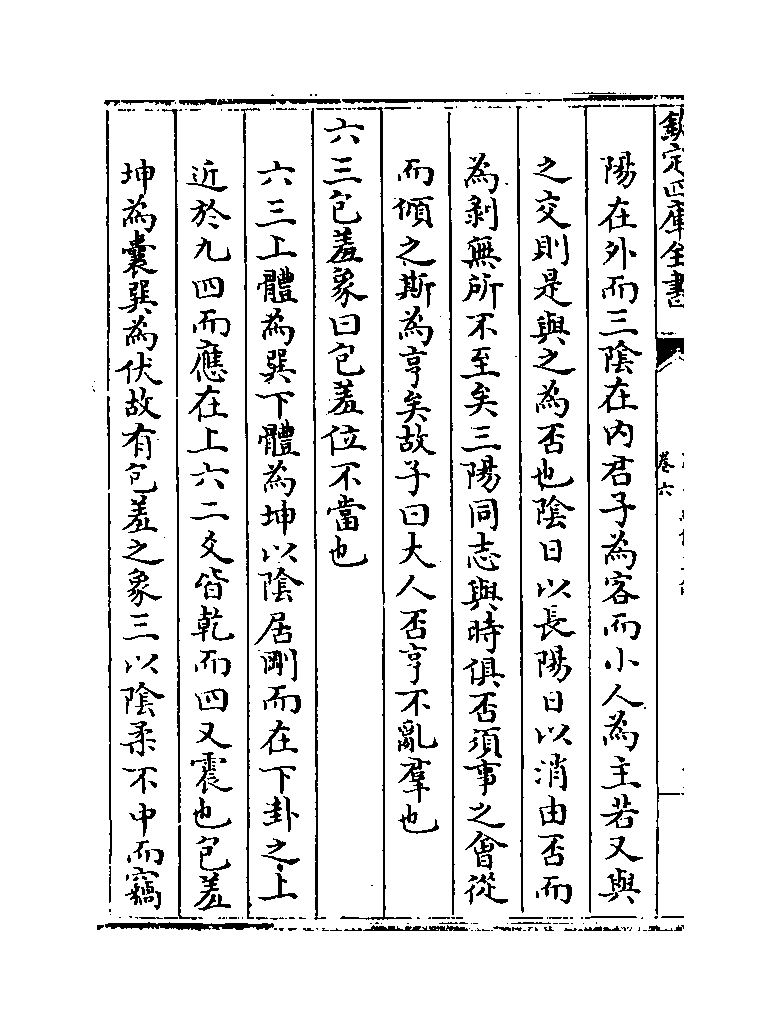 欽定四庫全書
卷六
陽在外而三陰在内君子為客而小人為主若又與
之交則是與之為否也陰日以長陽日以消由否而
為剥無所不至矣三陽同志與時俱否須事之會從
而傾之斯為亨矣故子曰大人否亨不亂羣也
六三包羞象曰包羞位不當也
六三上體為巽下體為坤以陰居剛而在下卦之上
近於九四而應在上六二爻皆乾而四又震也包羞
坤為囊巽為伏故有包羞之象三以陰柔不中而竊